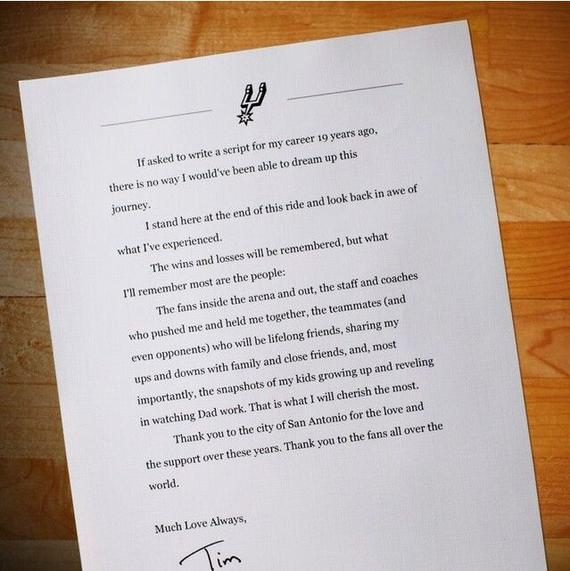 If asked to write a script for my career 19 years ago,
there is no way I would've been able to dream up this
journey.
I stand here at the end of this ride and look back in awe of
what I've experienced.
The wins and losses will be remembered, but what
I'll remember most are the people:
The fans inside the arena and out, the staff and coaches
who pushed me and held me together, the teammates (and
even opponents) who will be lifelong friends, sharing my
ups and downs with family and close friends, and, most
importantly, the snapshots of my kids growing up and reveling
in watching Dad work. That is what I will cherish the most.
Thank you to the city of San Antonio for the love and
the support over these years. Thank you to the fans all over the
world.
Much Love Always,
Tim